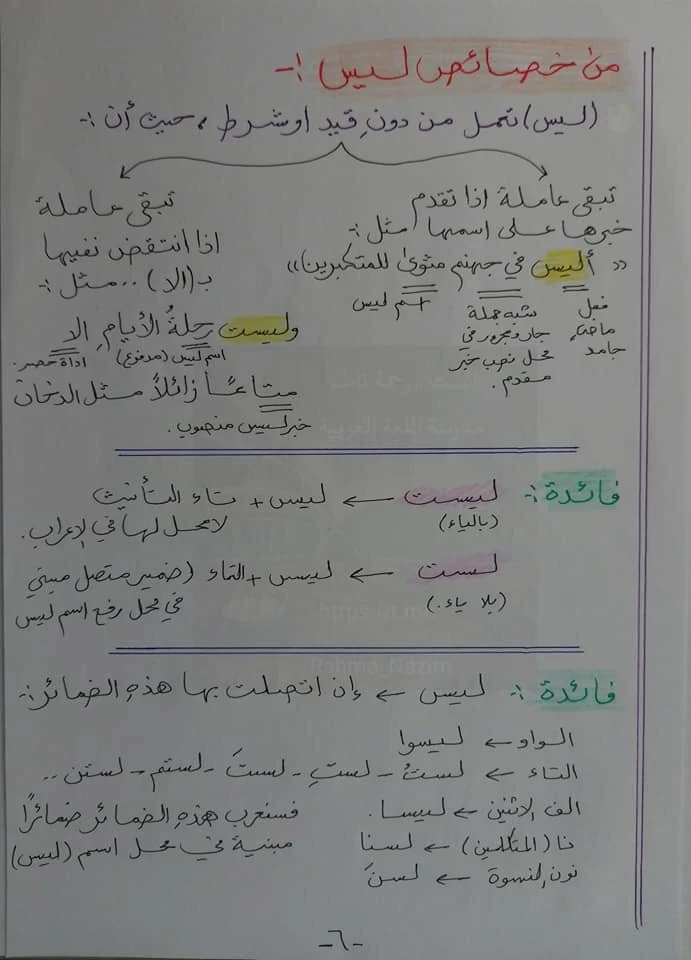 من خصائص ليس :-
(ليس) تعمل من دونِ قيد او شرط ، حيث أن :-
تبقى عاملة اذا تقدم
خبرها على اسمها مثل :-
« أليس في جهنم مثوىً للمتكبرين»
فعل ماضٍ جامد
شبه جملة جار ومجرور في محل نصب خبر مقدم .
اسم ليس
تبقى عاملة
اذا انتقض نفيها
بـ(الا) .. مثل :-
وليست رحلةُ الأيامِ الا
اسم ليس (مرفوع)
اداة حصر .
متاعاً زائلاً مثل الدخان
خبر ليس منصوب .
فائدة :- ليست ← ليس + تاء التأنيث
(بالياء) لا محل لها في الاعراب .
لست ← ليس + التاء (ضمير متصل مبني
(بلا ياء .) في محل رفع اسم ليس
فائدة :- ليس ← إن اتصلت بها هذهِ الضمائر :-
الواو ← ليسوا
التاء ← لستُ - لستِ - لستَ - لستم - لستن ..
الف الاثنين ← ليسا .
نا (المتكلمين) ← لسنا
نون النسوة ← لسنَ
فسنعرب هذهِ الضمائر ضمائراً
مبنية في محل اسم (ليس)
-٦-
Rahma_Nazim